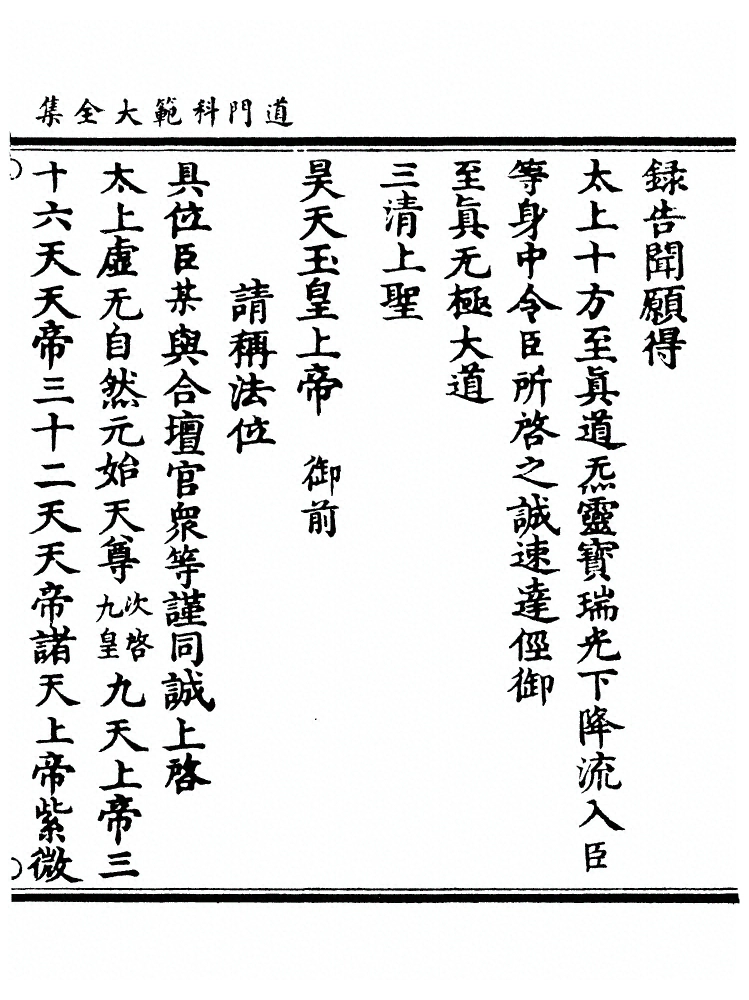 道門科範大全集
録告聞願得
太上十方至眞道炁靈寳瑞光下降流入臣
等身中令臣所啓之誠速達徑御
至眞无極大道
三清上聖
昊天玉皇上帝　御前
請稱法位
具位臣某與合壇官衆等謹同誠上啓
太上虛无自然元始天尊次啓九皇九天上帝三
十六天天帝三十二天天帝諸天上帝紫微